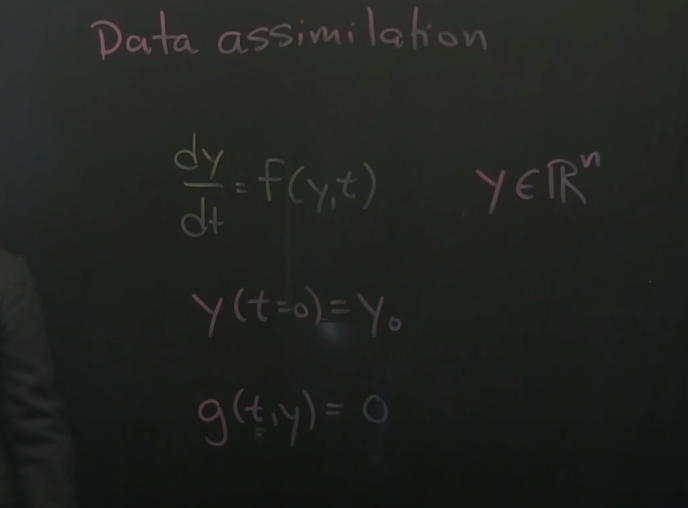 Data assimilation
dy/dt = f(y,t) y∈ℝⁿ
y(t=0)=y₀
g(t,y)=0